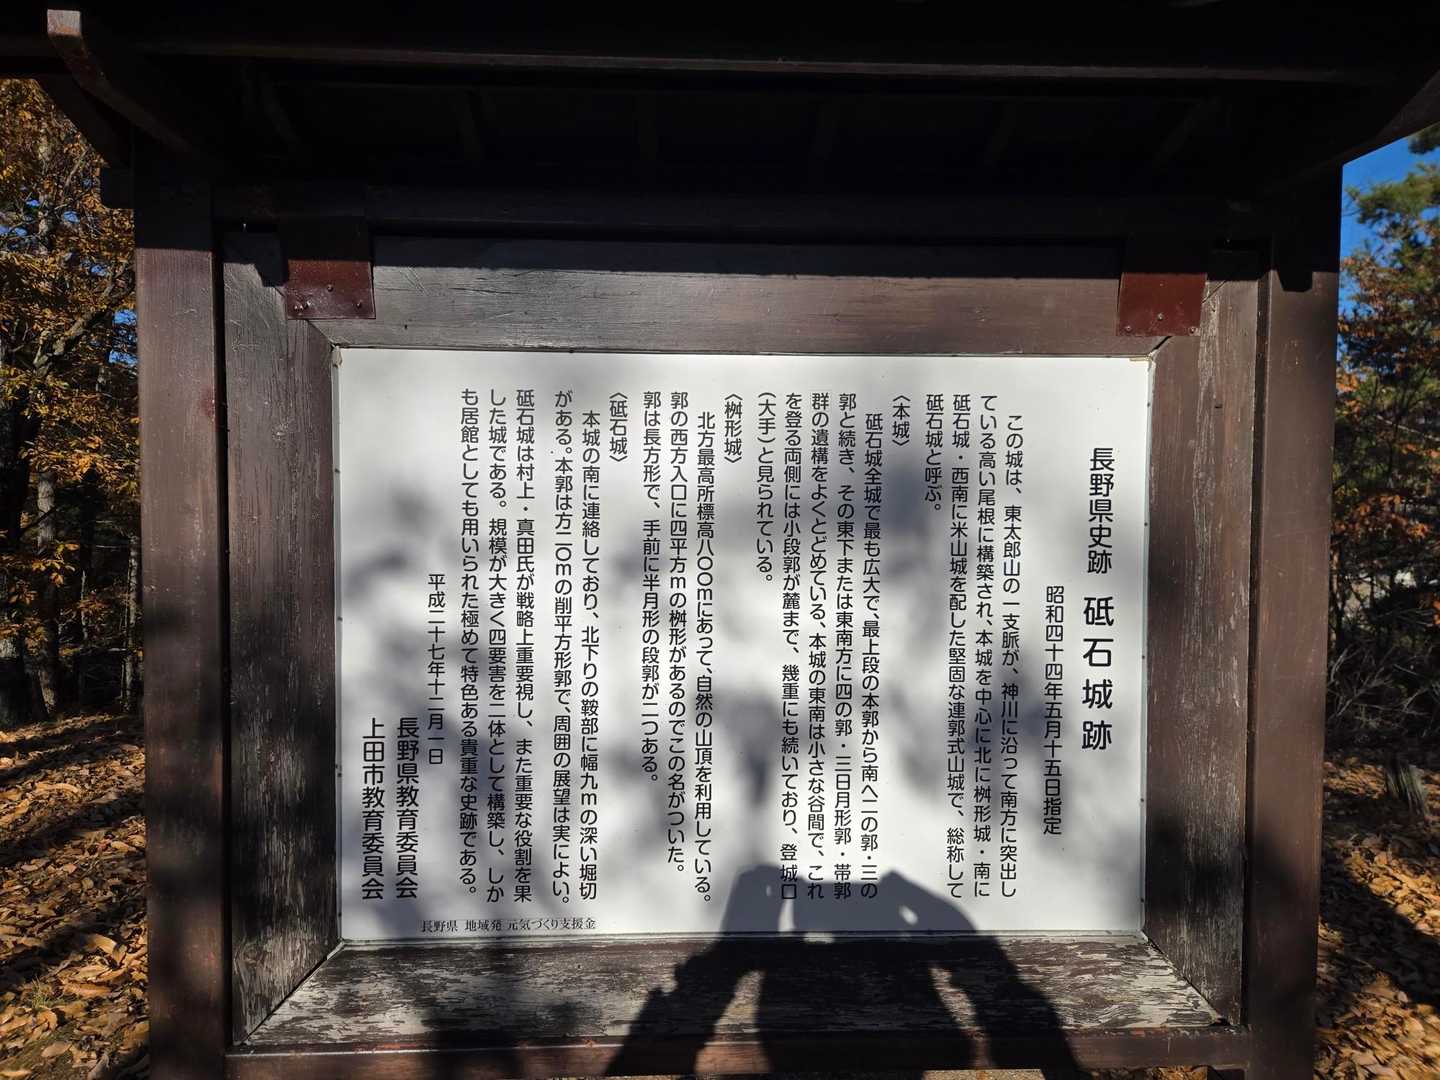 長野県史跡 砥石城跡
昭和四十四年五月十五日指定
この城は、東太郎山の一支脈が、神川に沿って南方に突出し
ている高い尾根に構築され、本城を中心に北に桝形城・南に
砥石城・西南に米山城を配した堅固な連郭式山城で、総称して
砥石城と呼ぶ。
〈本城〉
砥石城全城で最も広大で、最上段の本郭から南へ二の郭・三の
郭と続き、その東下または東南方に四の郭・三日月形郭・帯郭
群の遺構をよくとどめている、本城の東南は小さな谷間で、これ
を登る両側には小段郭が麓まで、幾重にも続いており、登城口
(大手)と見られている。
〈桝形城〉
北方最高所標高八〇〇mにあって、自然の山頂を利用している。
郭の西方入口に四平方mの桝形があるのでこの名がついた。
郭は長方形で、手前に半月形の段郭が二つある。
〈砥石城〉
本城の南に連絡しており、北下りの鞍部に幅九mの深い堀切
がある。本郭は方二〇mの削平方形郭で、周囲の展望は実によい。
砥石城は村上・真田氏が戦略上重要視し、また重要な役割を果
した城である。規模が大きく四要害を一体として構築し、しか
も居館としても用いられた極めて特色ある貴重な史跡である。
平成二十七年十二月一日
長野県教育委員会
上田市教育委員会
長野県 地域発 元気づくり支援金